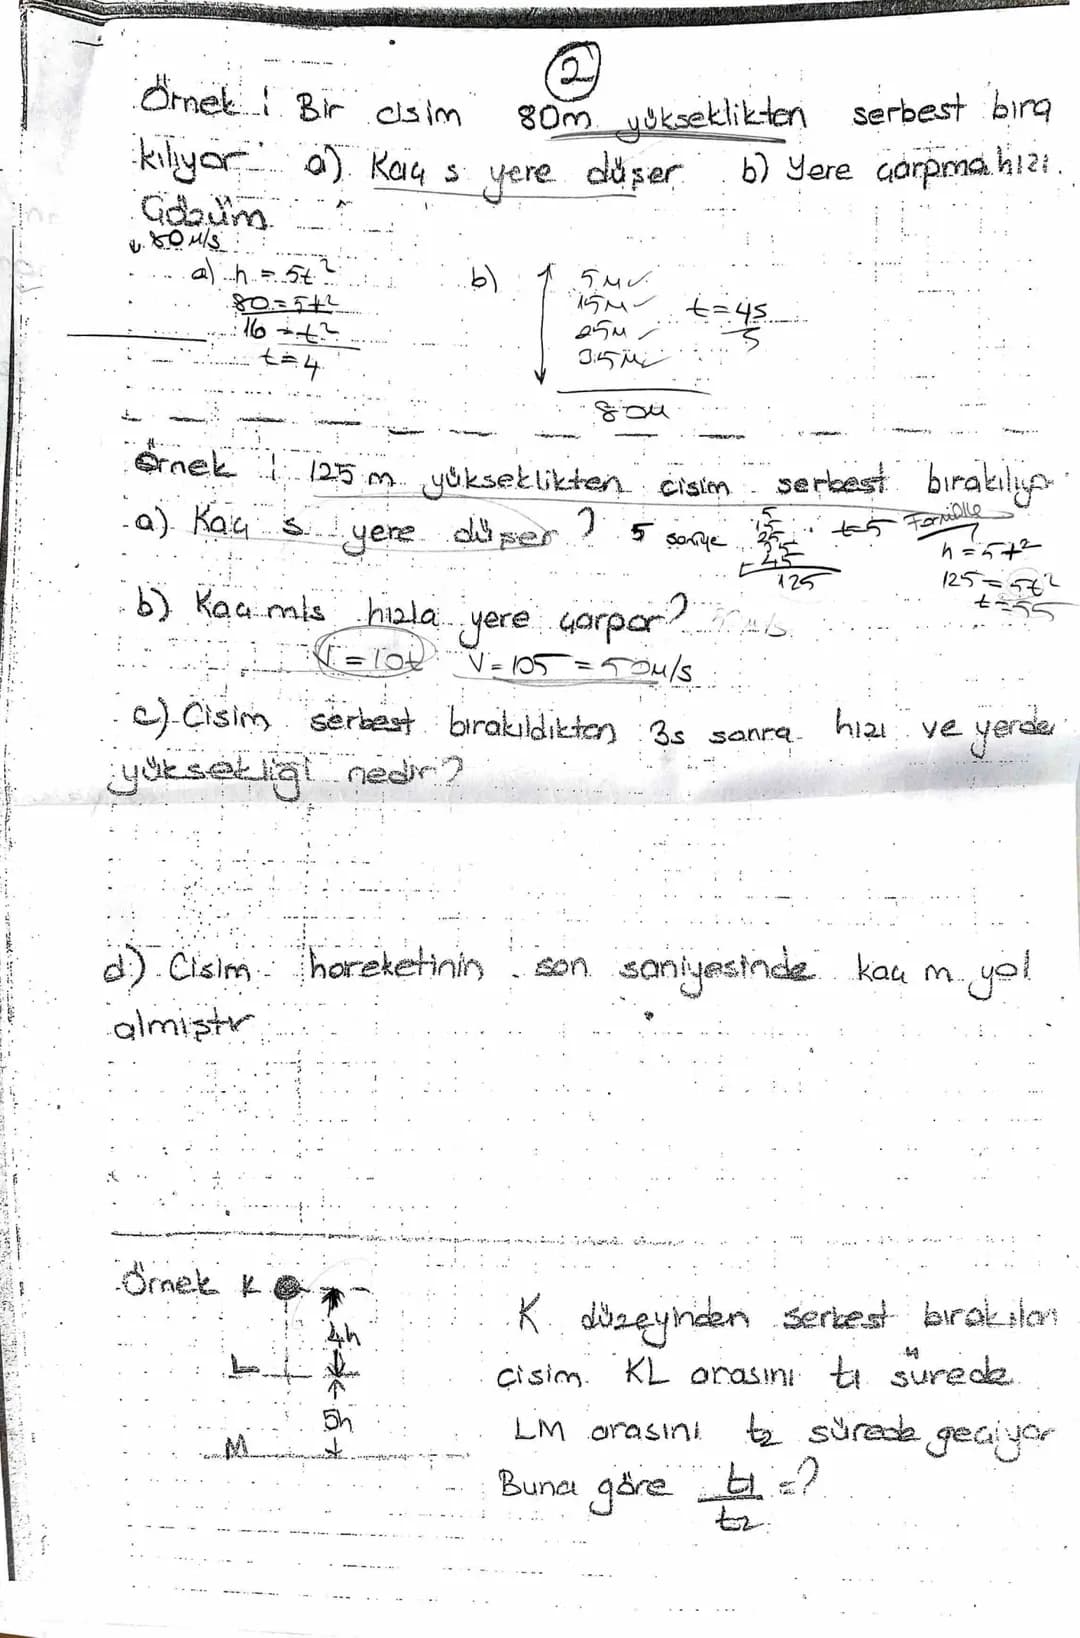 2
Örnek : Bir cisim 80m yükseklikten serbest bıra
kılıyor a) Kaç s yere düşer b) Yere çarpma hızı
Çözüm
80 M/s
a) h = 5t²
80 = 5t²
16 = t²
t = 4
b) 5M
15M
25M
35M
80M
t = 4s
Örnek : 125 m yükseklikten cisim serbest bırakılıyo
a) Kaç s yere düşer ? 5 saniye
5
15
25
35
+45
125
t=5 Formülle
h = 5t²
125 = 5t²
t = 5s
b) Kaç m/s hızla yere çarpar ?
V = 10t V = 10 5 = 50M/s
c) Cisim serbest bırakıldıkten 3s sonra hızı ve yerde
yüksekliği nedir ?
d) Cisim hareketinin son saniyesinde kaç m yol
almıştır
Örnek K
4h
L
5h
M
K düzeyinden serbest bırakılan
cisim KL arasını t1 sürede
LM arasını t2 sürede geçiyor
Buna göre t1 = ?
t2